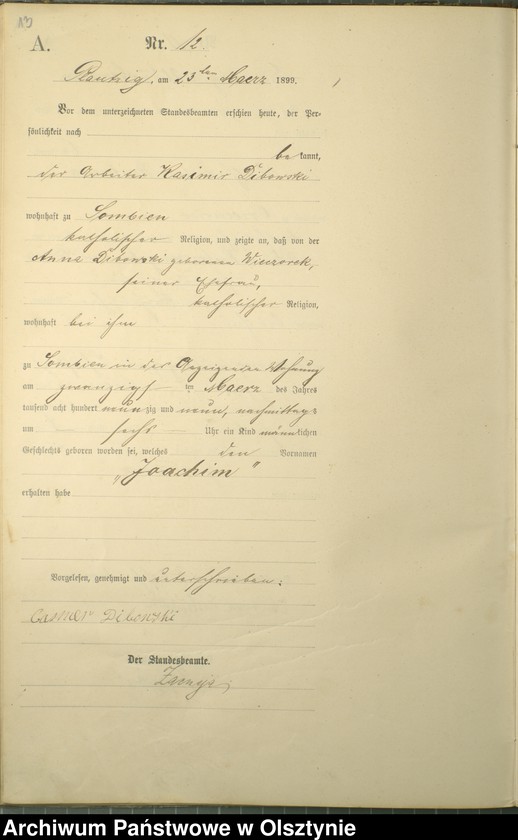 A.
Nr. 12.
Plautzig, am 23ten Maerz 1899.
Vor dem unterzeichneten Standesbeamten erschien heute, der Per-
sönlichkeit nach
bekannt,
der Arbeiter Kasimir Dibowski
wohnhaft zu Sombien
katholischer Religion, und zeigte an, daß von der
Anna Dibowski geborenen Wieczorek,
seiner Ehefrau,
katholischer Religion,
wohnhaft bei ihm
zu Sombien in der Wohnung
am zwanzigs ten Maerz des Jahres
tausend acht hundert neunzig und neun, nachmittags
um sechs Uhr ein Kind männlichen
Geschlechts geboren worden sei, welches den Vornamen
„Joachim"
erhalten habe
Vorgelesen, genehmigt und unterschrieben:
Casmer Dibowski
Der Standesbeamte.
Archiwum Państwowe w Olsztynie